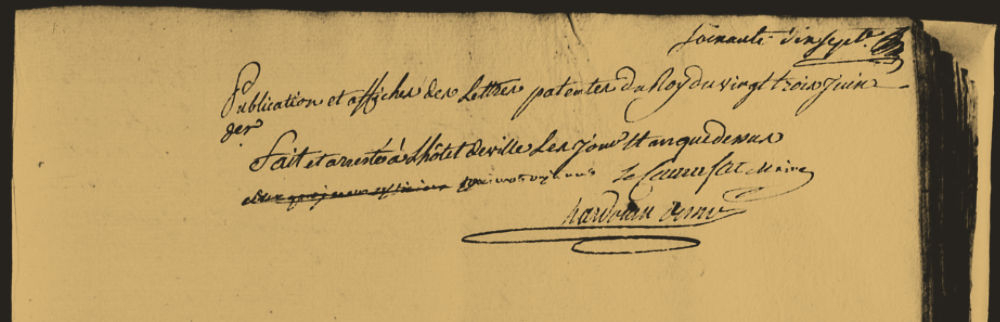 soixante dix sept.
Publication et affiches des Lettres patentes du Roy du vingt trois juin
der
Fait et arresté à L'hôtel de ville Les jour Et an que dessus
Maire
hardouin